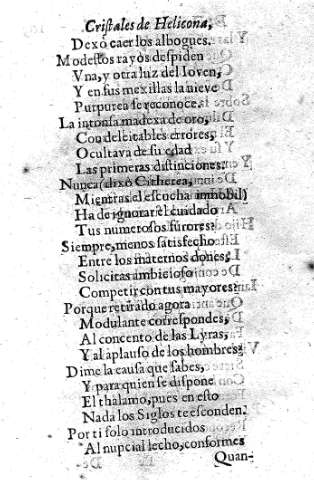 Criſtales de Helicona,
Dexò caer los albogues.
Modeſtos rayos deſpiden
Vna, y otra luz del Iouen,
Y en ſus mexillas la nieve
Purpurea ſe reconoce.
La intonſa madexa de oro,
Con deleitables errores,
Ocultava de ſu edad
Las primeras diſtinciones.
Nunca (dixo Citherea,
Mientras el eſcucha immobil)
Ha de ignorar el cuidado
Tus numeroſos furores?
Siempre, menos ſatisfecho
Entre los maternos dones,
Solicitas ambicioſo
Competir con tus mayores?
Porque retirado agora
Modulante correſpondes,
Al concento de las Lyras,
Y al aplauſo de los hombres?
Dime la cauſa que ſabes,
Y para quien ſe diſpone
El thalamo, pues en eſto
Nada los Siglos te eſconden.
Por ti ſolo introducidos
Al nupcial lecho, conformes
Quan-